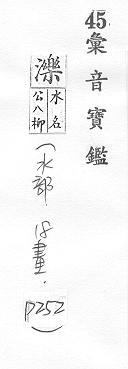 45. 彙音寶鑑
濼 水名 公八柳 (水部. 18畫. P252)